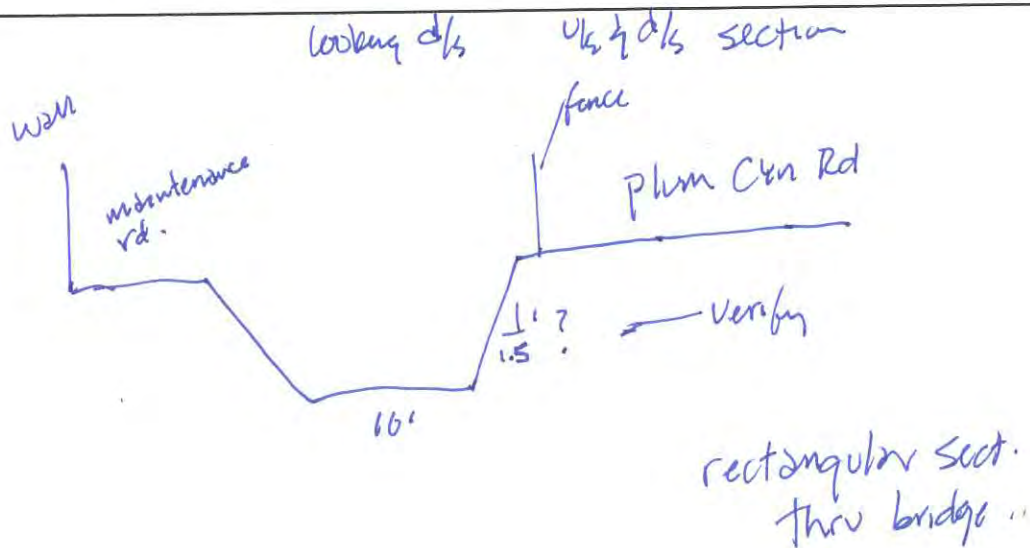 looking d/s u/s & d/s section
wall
fence
maintenance
rd.
Plum Cyn Rd
1'
1.5 ?
verify
10'
rectangular sect.
thru bridge ..